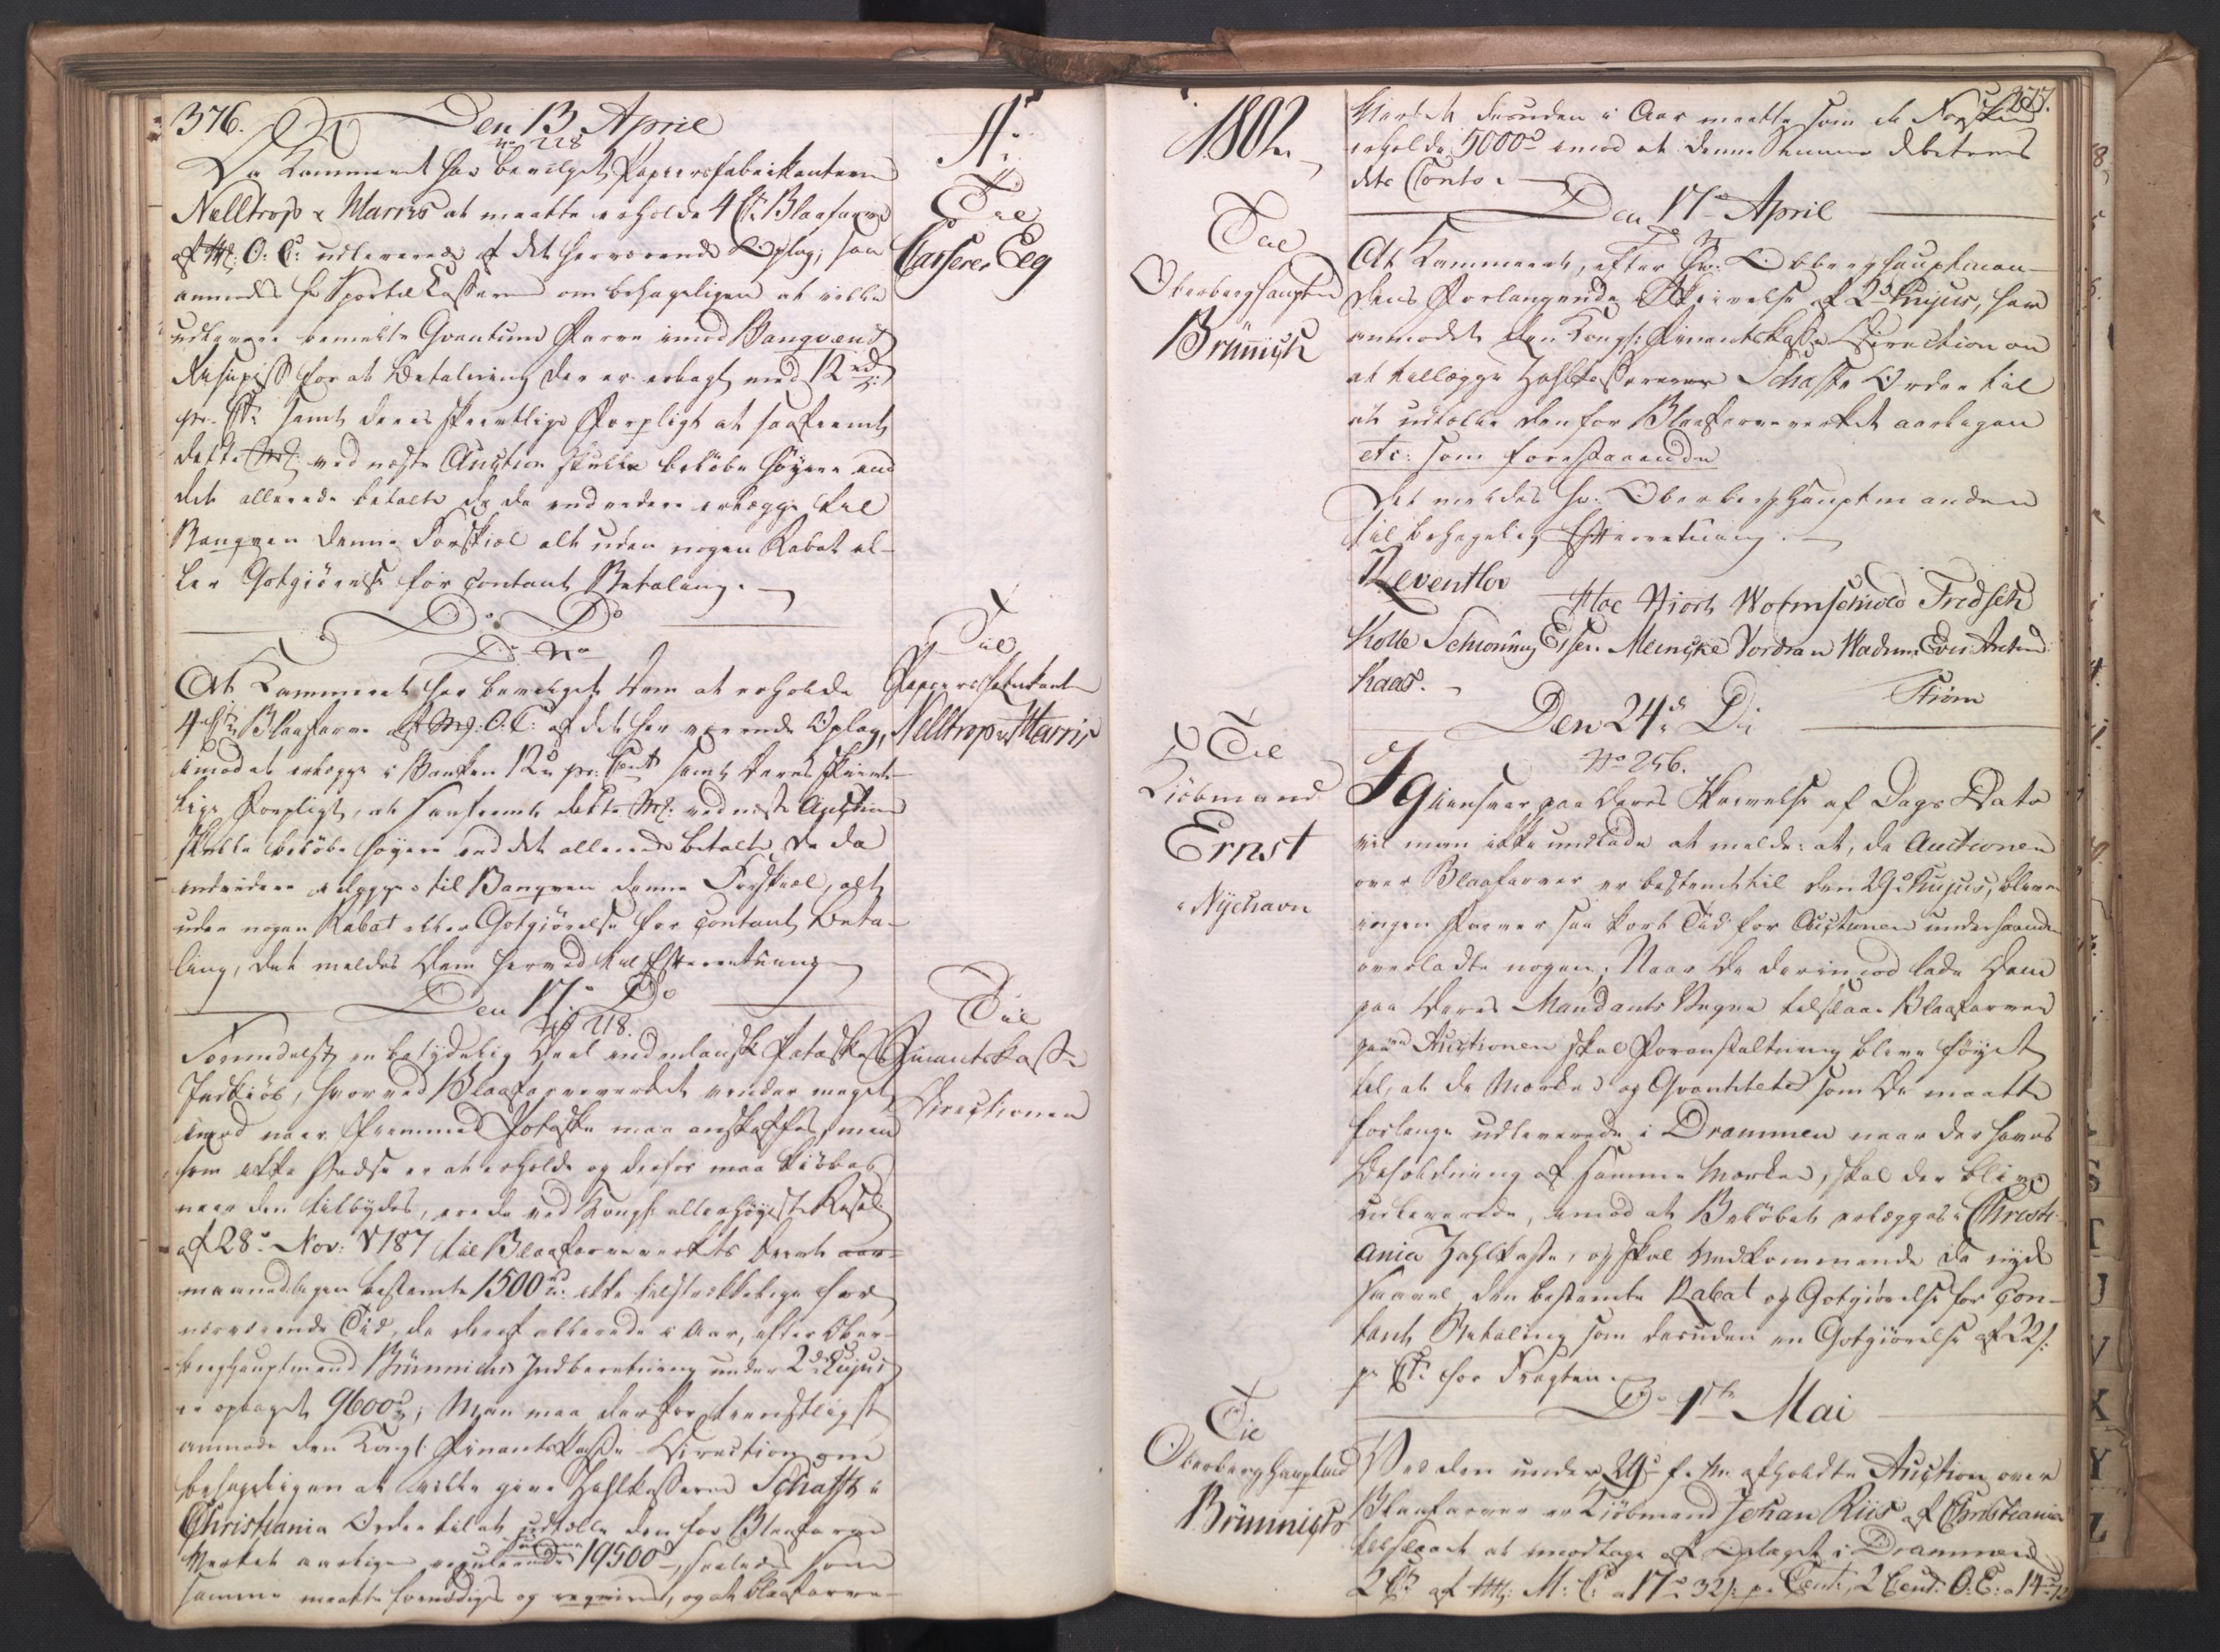 376.
Den 13 April
No 228
A.
Da Kammeret har bevilget Papiirsfabrikanterne
Nelltrop & Marris at maatte erholde 4 Ctr Blaafarve
af Mk: O: C: udleveret af det herværende Oplag, saa
anmodes Hr Sportel Casserer om behageligen at ville
udlevere bemelte Qvantum Farve imod Banqvens
for at Betalning der er erlagt med 12 rd
pr. Ctr samt deres skriftlige Forpligt at saafremt
dette Mk: ved næste Auction skulle beløbe høyere end
det allerede betalte de da endvidere erlægge til
Banqven denne Forskiel alt uden nogen Rabat el-
ler Gotgiørelse for contant Betaling.
Til
Casserer Eeg
Do Do
Do No
At Kammeret har bevilget Dem at erholde
4 Ctr Blaafarve af Mk. O.C: af det her værende Oplag,
imod at erlægge i Banken 12 rd pr. Cent samt Deres skrift-
lige Forpligt, at saafremt dette Mk: ved næste Auction
skulle beløbe høyere end det allerede betalte, De da
endvidere erlægger til Banqven denne Forskiel, alt
uden nogen Rabat eller Gotgiørelse for contant Beta-
ling, det meldes Dem herved til Efterretning
Til
Papiirsfabrikanter
Nelltrop & Marris
Den 17 Do
No 218.
Formedelst en betydelig Deel indenlandsk Pataske
Indkiøb, hvorved Blaafarveverket vinder meget
imod naar fremmed Potaske maa anskaffes, men
som ikke stedse er at erholde og derfor maa kiøbes
naar den tilbydes, ere de ved Kongl: allerhøyeste Resol:
af 28 Nov: 1787 til Blaafarveverkets Drivt
maanedligen bestemte 1500 rd ikke tilstrækkelige for
nærværende Tid, da deraf allerede i Aar, efter Ober-
berghauptmand Brünnichs Indberetning under 2d hujus
er optaget 9600 rd; Man maa derfor tienstligst
anmode den Kongl: Finantskasse Direction om
behageligen at ville give Zahlkasserer Schafft i
Christiania Ordre til at udtælle den for Blaafarve
Verket aarligen regulerende Summa 19500 rd, saaledes som
samme maatte fornødiges og reqvires, og at Blaafarve-
Til
Finantskasse
Directionen
1802.
377.
Verket desuden i Aar maatte som et Forskud
erholde 5000 rd imod at denne Summa debiteres
dets Conto.
Den 17 April
Til
Oberberghauptmd
Brünnich
At Kammeret, efter Hr: Obberghauptman-
dens Forlangende i Skrivelse af 2d hujus, har
anmodet den Kongl: Finantskasse Direction om
at tillægge Zahlkassereren Schafft Ordre til
at udtælle den for Blaafarveverket aarligen
etc: som forestaaende
Det meldes Hr: Oberberghauptmanden
til behagelig Efterretning.
Reventlov
Hoe Hiort Wormskiold Fridsch
Kolle Schiönning Esser. Meincke Vordran Wadum Evers
Kaas.
Strøm
Den 24 Do
No 256.
Til
Kiöbmand
Ernst
i Nyehavn
Igiensvar paa Deres Skrivelse af Dags Dato
vil man ikke undlade at melde: at, da Auctionen
over Blaafarver er bestemt til den 29d hujus, bliver
ingen Farver saa kort Tid før Auctionen underhaanden
overladte nogen; Naar De derimod lade Dem
paa Deres Mandants Vegne tilslaae Blaafarver
paa Auctionen skal Foranstaltning blive føyet
til, at de Mærker og Qvantiteter som De maatte
forlange udleverede i Drammen naar der haves
Beholdning af samme Mærker, skal der blive
udleverede, imod at Beløbet erlægges i Christi-
ania Zahlkasse, og skal Vedkommende da nyde
saavel den bestemte Rabat og Gotgiørelse for Con-
tant Betaling som desuden en Gotgiørelse af 22 s:
pr Ctr for Fragten.
D. 1ste Mai
Til
Oberberghauptmd
Brünnich
Ved den under 29 f. M. afholdte Auction over
Blaafarver er Kiöbmand Johan Riis af Christiania
tilslaaet at modtage af Oplaget i Drammen
2 Ctr af Mk: M: C: a 17 rd 32 s: pr Cent:, 2 Cent: O: E: a 14